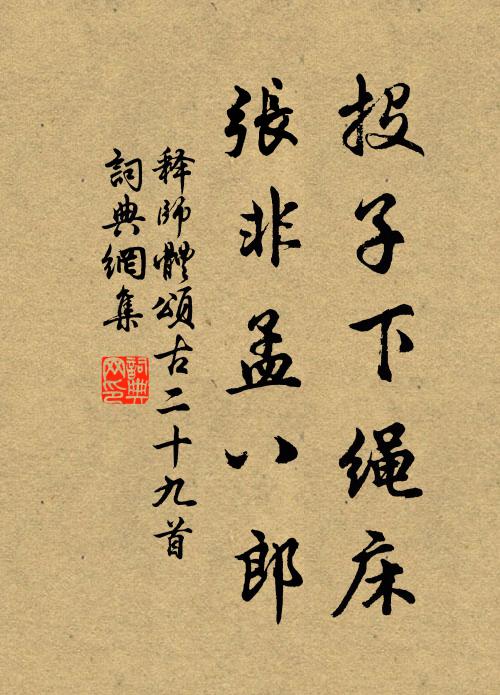 投子下绳床
張非孟八郎
释師體頌古二十九首
詞典網集
詞典
网印